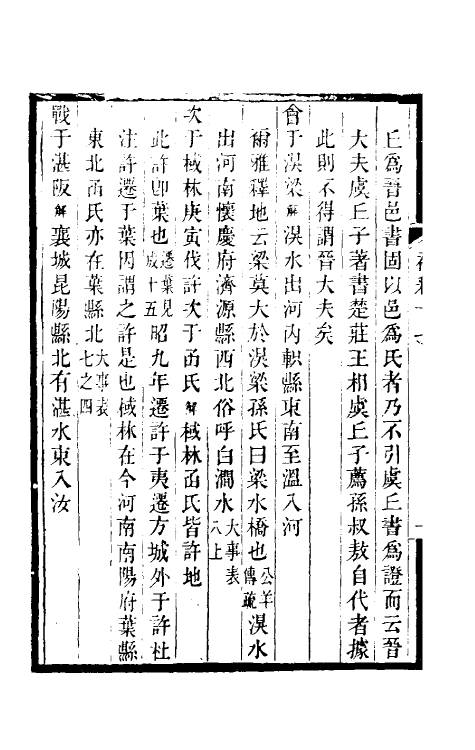 丘為晉邑書固以邑為氏者乃不引虞丘書為證而云晉
大夫虞丘子著書楚莊王相虞丘子薦孫叔敖自代者據
此則不得謂晉大夫矣
會于湨梁解湨水出河內軹縣東南至溫入河
爾雅釋地云梁莫大於湨梁孫氏曰梁水橋也公羊傳疏湨水
出河南懷慶府濟源縣西北俗呼白澗水大事表八上
次于棫林庚寅伐許次于函氏解棫林函氏皆許地
此許即葉也遷葉見成十五昭九年遷許于夷遷方城外于許杜
注許遷于葉因謂之許是也棫林在今河南南陽府葉縣
東北函氏亦在葉縣北大事表七之四
戰于湛阪解襄城昆陽縣北有湛水東入汝